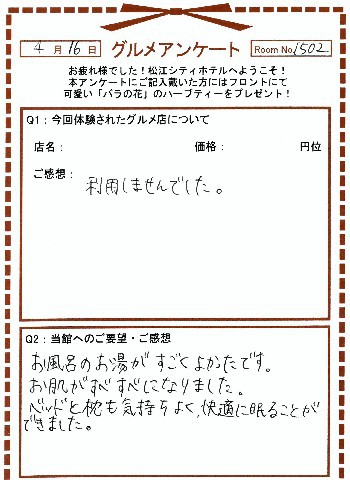 4月16日 グルメアンケート Room No.1502
お疲れ様でした!松江シティホテルへようこそ!
本アンケートにご記入戴いた方にはフロントにて
可愛い「バラの花」のハーブティーをプレゼント!
Q1:今回体験されたグルメ店について
店名: 価格: 円位
ご感想:
利用しませんでした。
Q2:当館へのご要望・ご感想
お風呂のお湯がすごくよかたです。
お肌がすべすべになりました。
ベッドと枕も気持ちよく、快適に眠ることが
できました。